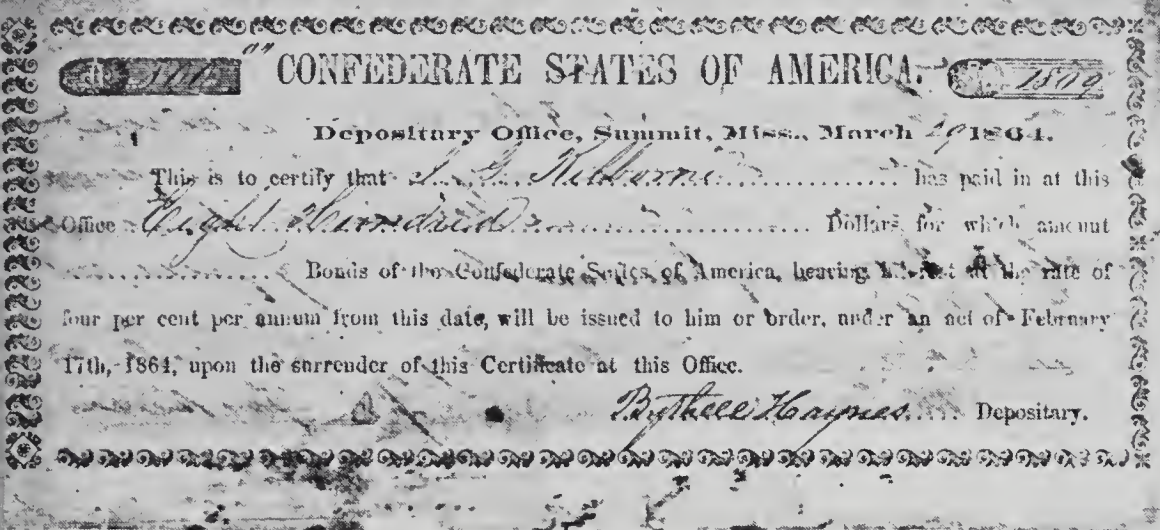 CONFEDERATE STATES OF AMERICA.
1809
Depositary Office, Summit, Miss., March 29 1864.
This is to certify that J. G. Kilborne has paid in at this
Office Eight Hundred Dollars, for which amount
Bonds of the Confederate States of America, bearing interest at the rate of
four per cent per annum from this date, will be issued to him or order, under an act of February
17th, 1864, upon the surrender of this Certificate at this Office.
Bythell Haynes Depositary.